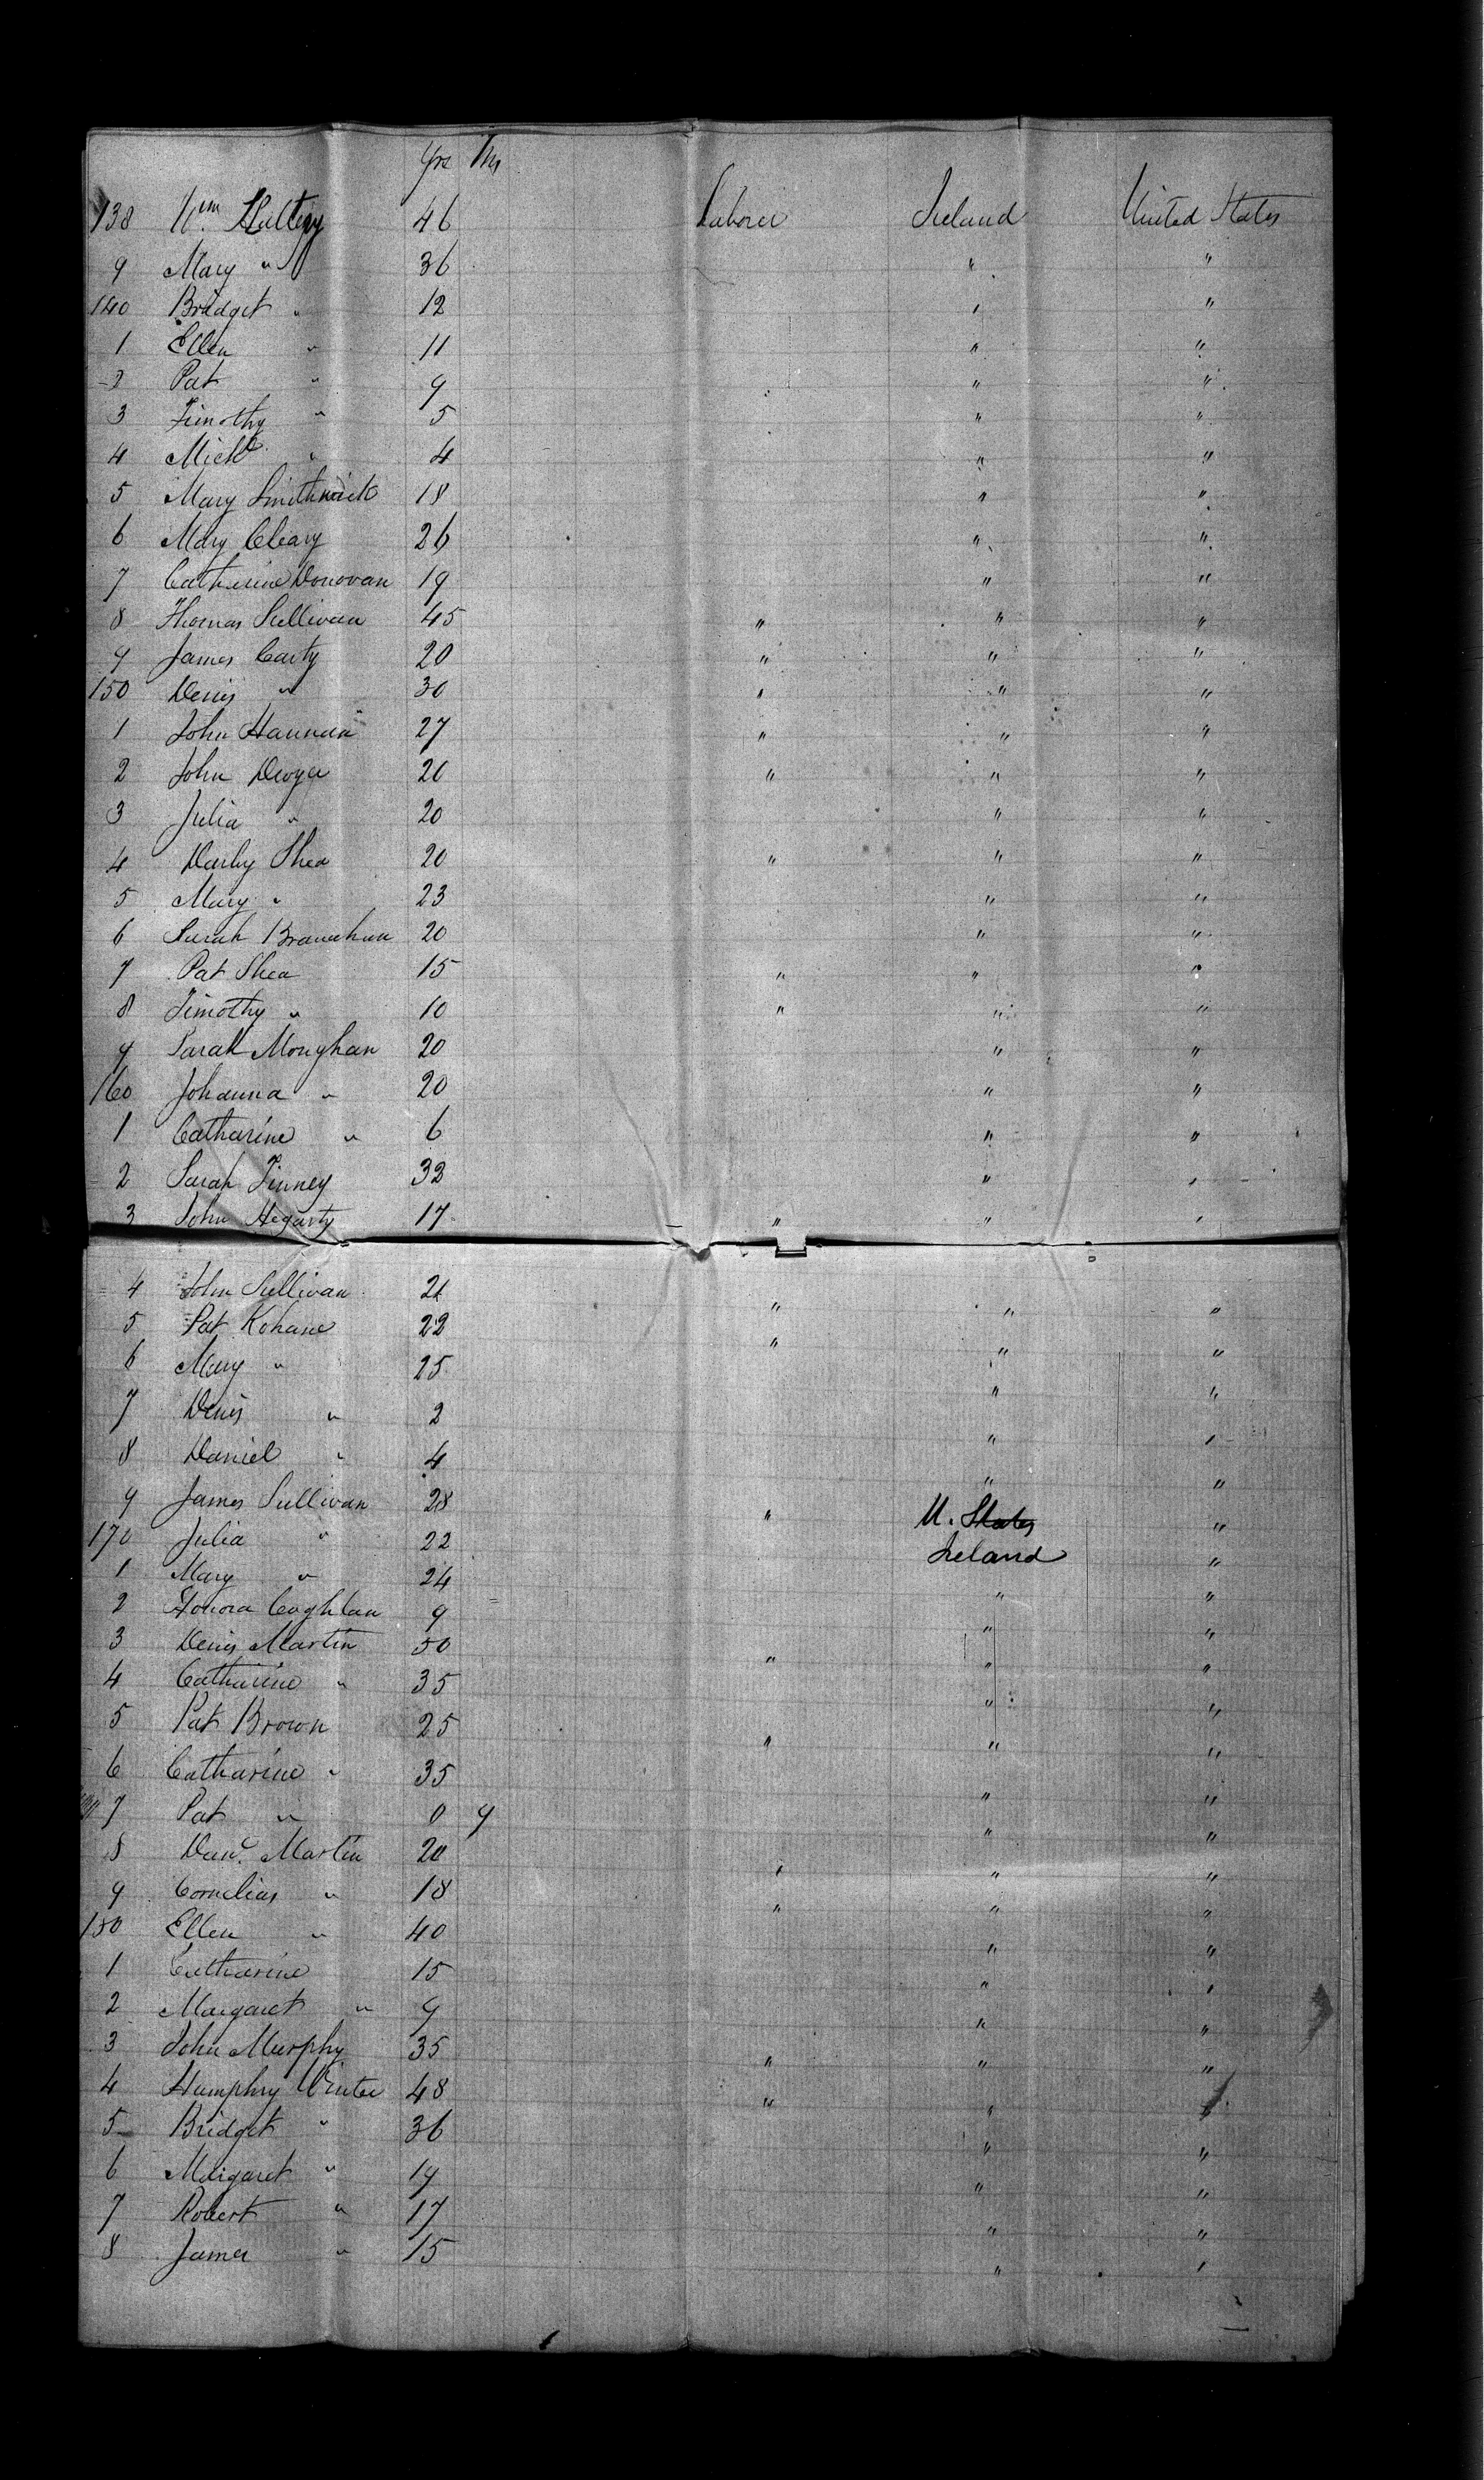 Yrs Ms
138 Wm. Slattery 46 Laborer Ireland United States
9 Mary " 36 " "
140 Bridget " 12 " "
1 Ellen " 11 " "
2 Pat " 9 " "
3 Timothy " 5 " "
4 Michl " 4 " "
5 Mary Smithwick 18 " "
6 Mary Cleary 26 " "
7 Catherine Donovan 19 " "
8 Thomas Sullivan 45 " " "
9 James Carty 20 " " "
150 Denis " 30 " " "
1 John Hannan 27 " " "
2 John Dwyer 20 " " "
3 Julia " 20 " "
4 Darby Shea 20 " " "
5 Mary " 23 " "
6 Sarah 20 " "
7 Pat Shea 15 " " "
8 Timothy " 10 " " "
9 Sarah Monghan 20 " "
160 Johanna " 20 " "
1 Catharine " 6 " "
2 Sarah Finney 32 " "
3 John Hegarty 17 " " "
4 John Sullivan 21 " " "
5 Pat Kohane 22 " " "
6 Mary " 25 " "
7 Denis " 2 " "
8 Daniel " 4 " "
9 James Sullivan 28 " U. States "
170 Julia " 22 Ireland "
1 Mary " 24 " "
2 Honora Coghlan 9 " "
3 Denis Martin 50 " " "
4 Catharine " 35 " "
5 Pat Brown 25 " " "
6 Catharine " 35 " "
7 Pat " 0 9 " "
8 Danl. Martin 20 " " "
9 Cornelius " 18 " " "
180 Ellen " 40 " "
1 Catharine 15 " "
2 Margaret " 9 " "
3 John Murphy 35 " " "
4 Humphry Winter 48 " " "
5 Bridget " 36 " "
6 Margaret " 19 " "
7 Robert " 17 " "
8 James " 15 " "